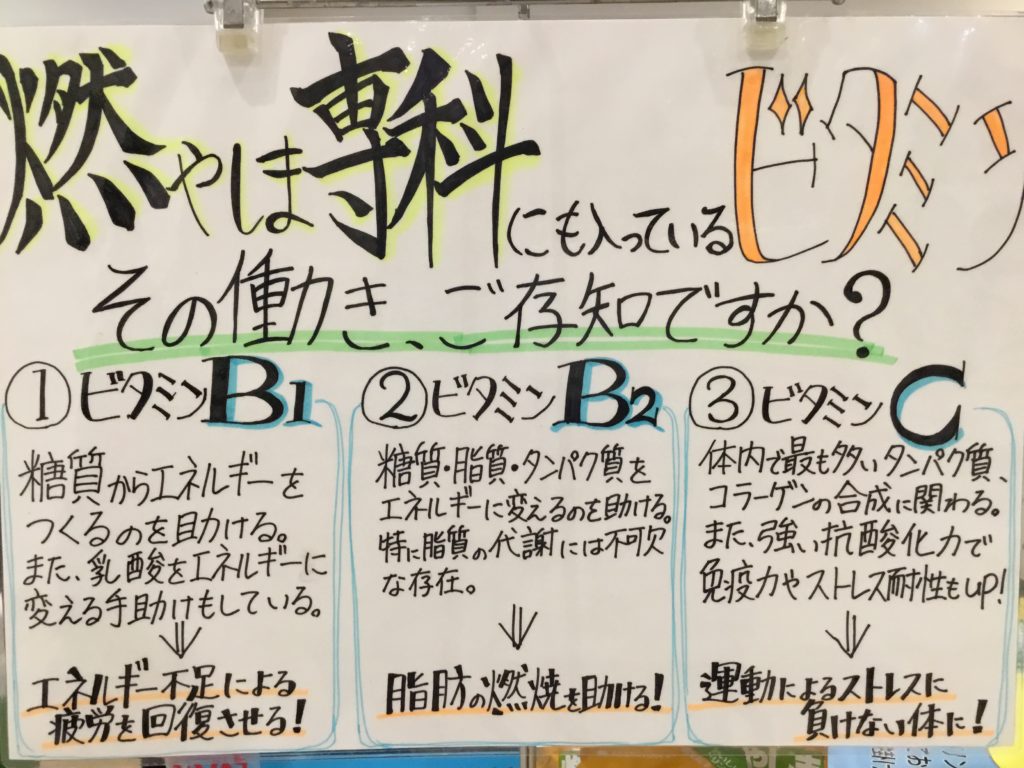 燃やしま専科にも入っているビタミン
その働き、ご存知ですか?
①ビタミンB1
糖質からエネルギーを
つくるのを助ける。
また、乳酸をエネルギーに
変える手助けもしている。
⇓
エネルギー不足による
疲労を回復させる!
②ビタミンB2
糖質・脂質・タンパク質を
エネルギーに変えるのを助ける。
特に脂質の代謝には不可欠
な存在。
⇓
脂肪の燃焼を助ける!
③ビタミンC
体内で最も多いタンパク質、
コラーゲンの合成に関わる。
また、強い抗酸化力で
免疫力やストレス耐性もUP!
⇓
運動によるストレスに
負けない体に!